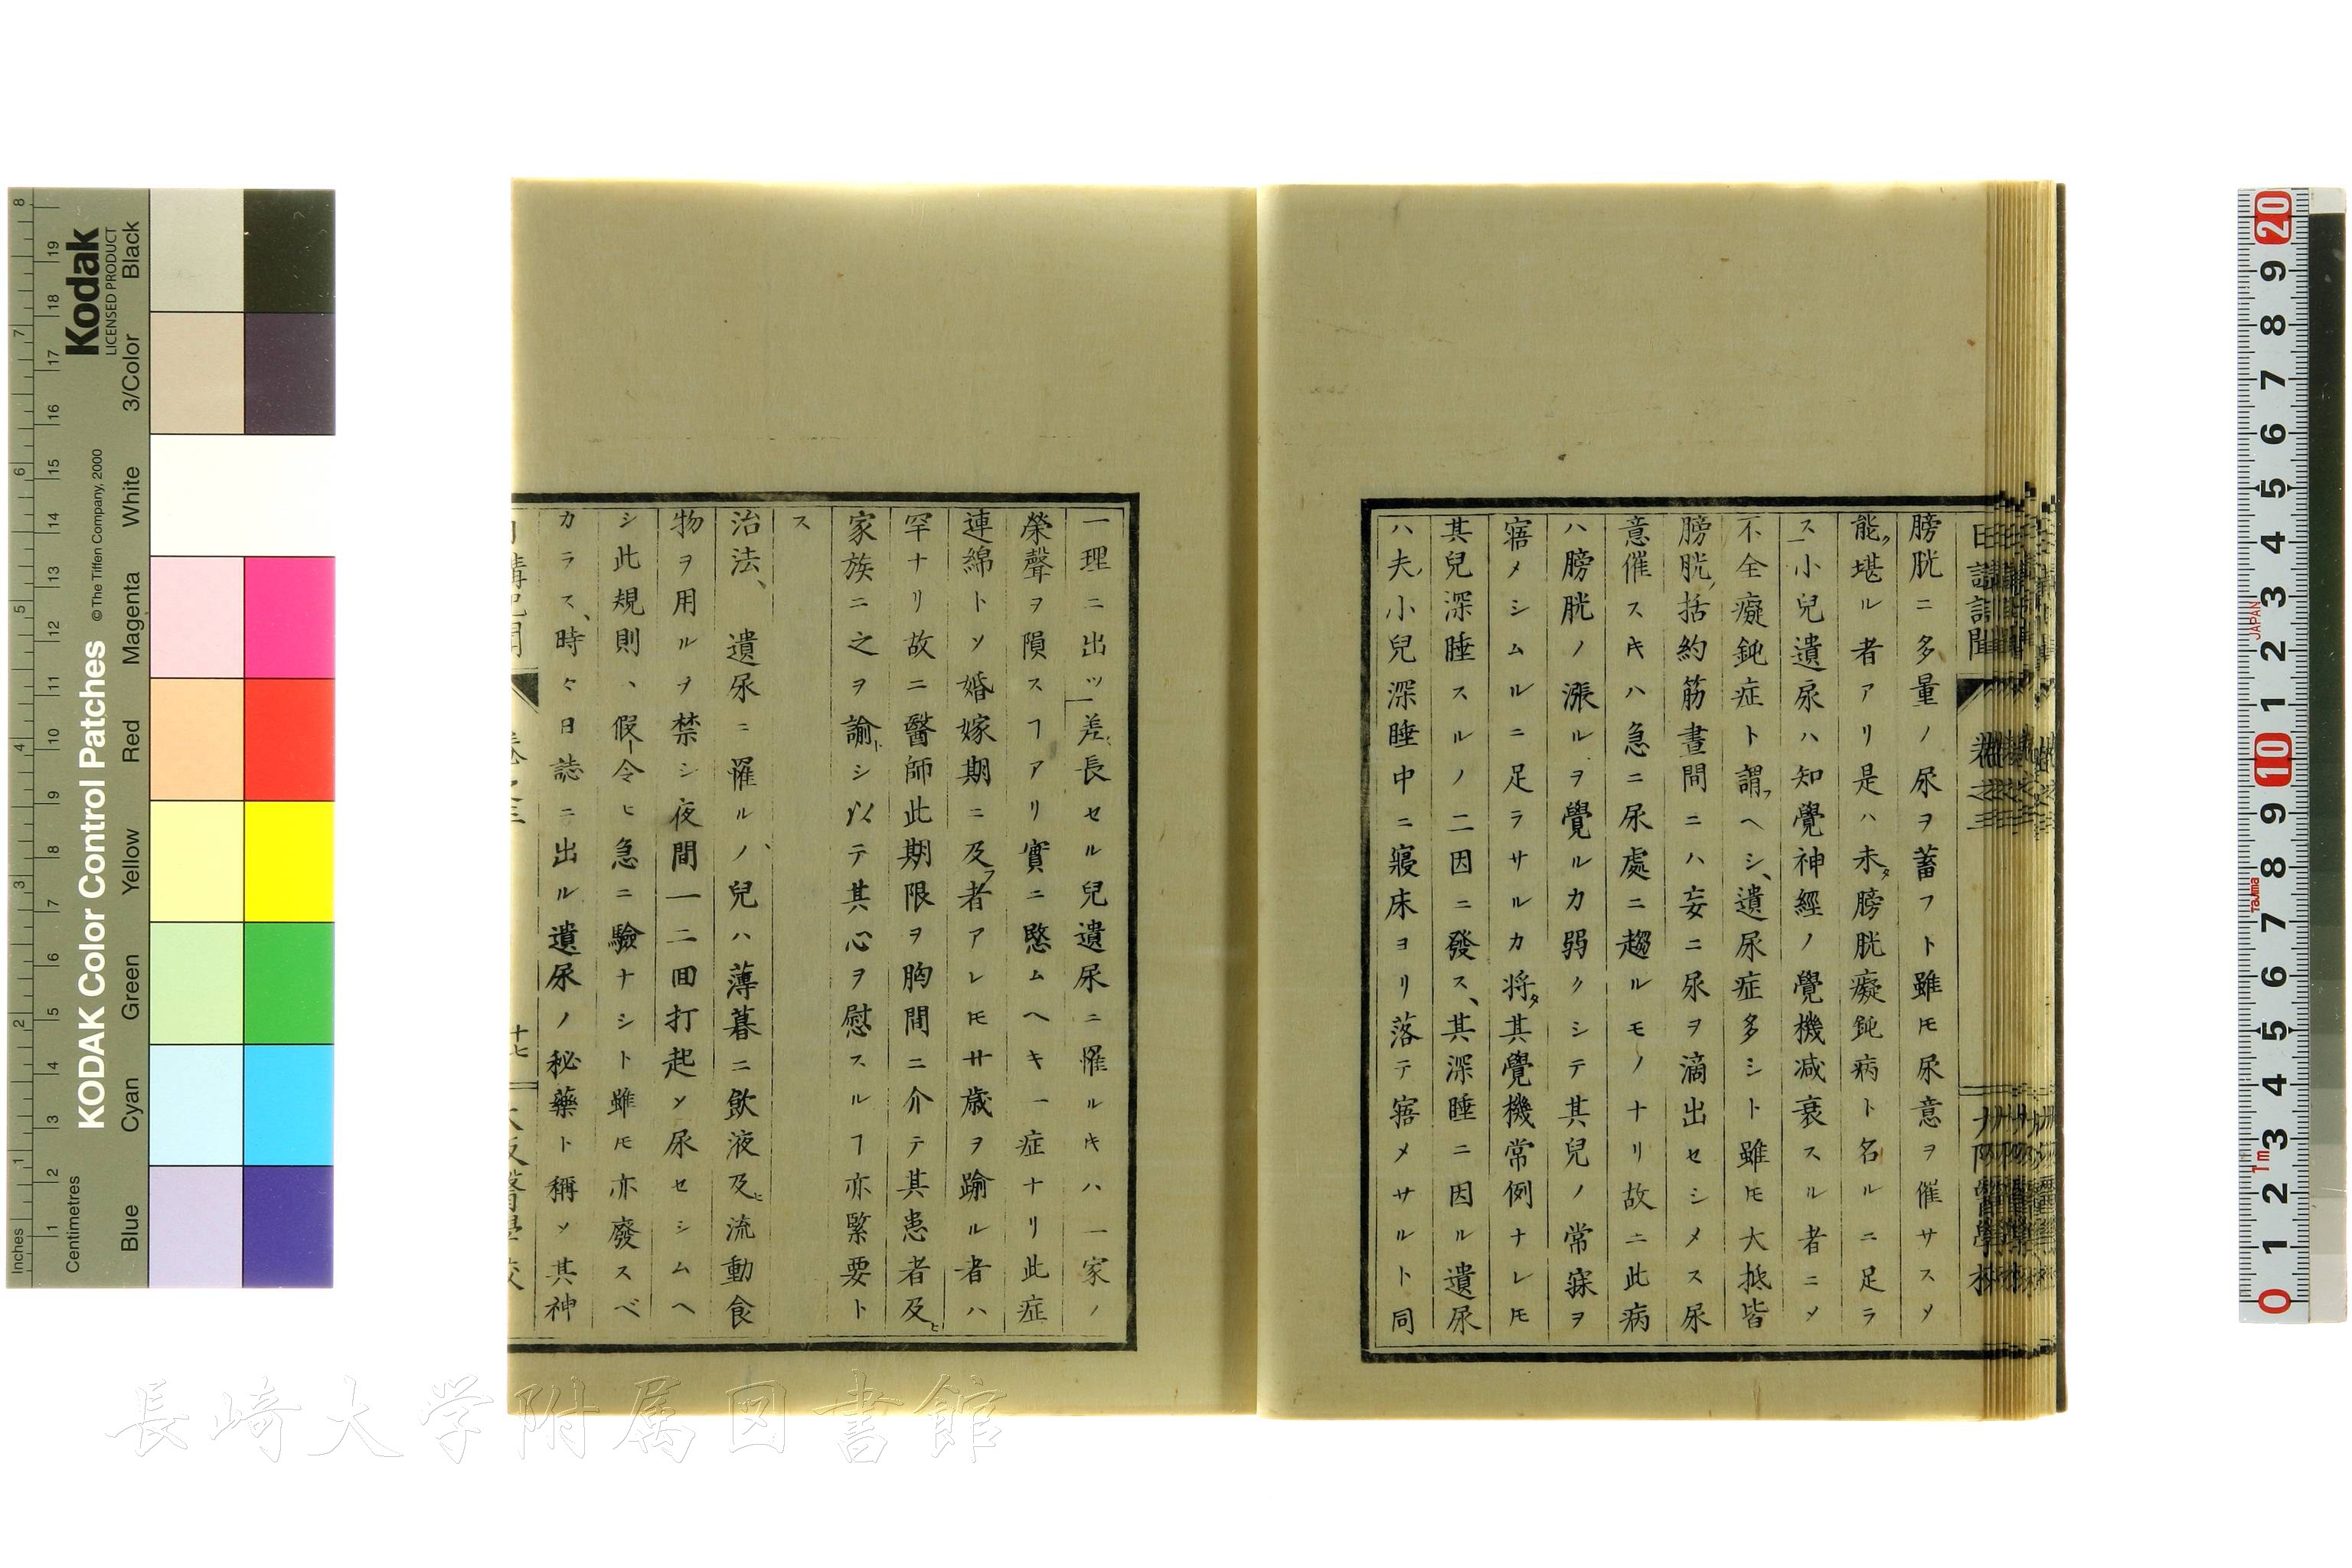 日講記聞 卷之三 大阪醫學校
膀胱ニ多量ノ尿ヲ蓄フト雖𪜈尿意ヲ催サスソ
能ク堪ル者アリ是ハ未タ膀胱癡鈍病ト名ルニ足ラ
ス小兒遺尿ハ知覺神經ノ覺機減衰スル者ニソ
不全癡鈍症ト謂フヘシ、遺尿症多シト雖𪜈大抵皆
膀胱括約筋晝間ニハ妄ニ尿ヲ滴出セシメス尿
意催スキハ急ニ尿處ニ趨ルモノナリ故ニ此病
ハ膀胱ノ漲ルヲ覺ルカ弱クシテ其兒ノ常寐ヲ
寤メシムルニ足ラサルカ将タ其覺機常例ナレ𪜈
其兒深睡スルノ二因ニ發ス、其深睡ニ因ル遺尿
ハ夫ノ小兒深睡中ニ寢床ヨリ落テ寤メサルト同
一理ニ出ツ差長セル兒遺尿ニ罹ルキハ一家ノ
榮聲ヲ隕スヿアリ實ニ愍ムヘキ一症ナリ此症
連綿トソ婚嫁期ニ及フ者アレ𪜈廿歳ヲ踰ル者ハ
罕ナリ故ニ醫師此期限ヲ胸間ニ介テ其患者及ヒ
家族ニ之ヲ諭シ以テ其心ヲ慰スルヿ亦緊要ト
ス
治法、遺尿ニ罹ルノ兒ハ薄暮ニ飲液及ヒ流動食
物ヲ用ルヲ禁シ夜間一二回打起ソ尿セシムヘ
シ此規則、假令ヒ急ニ驗ナシト雖𪜈亦廢スベ
カラス、時々日誌ニ出ル遺尿ノ秘藥ト稱ソ其神
十七
Kodak
LICENSED PRODUCT
KODAK Color Control Patches
©The Tiffen Company, 2000
Inches
Centimetres
Blue Cyan Green Yellow Red Magenta White 3/Color Black
JAPAN
Tajima
1m
長崎大学附属図書館